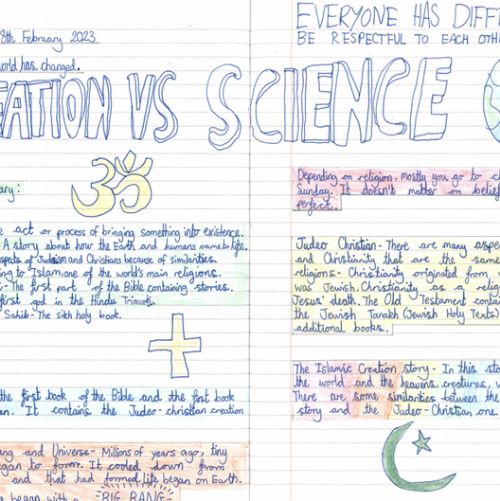 8th February 2023
world has changed.
EATION VS SCIENCE
ary:
act or process of bringing something into existence.
A story about how the Earth and humans came to life.
spects of Judaism and Christians because of similarities.
ing to Islam one of the world's main religions.
The first part of the Bible containing stories.
first god in the Hindu Trimurti
Sahib- The sikh holy book.
the first book of the Bible and the first book
It contains the Judeo-christian creation
ang and Universe- Millions of years ago, tiny
egan to form. It cooled down from
and that had formed life began on Earth.
began with a BIG BANG
EVERYONE HAS DIFF
BE RESPECTFUL TO EACH OTH
Depending on religion, mostly you go to c
Sunday. It doesn't matter on belief
perfect.
Judeo Christian- There are many aspe
and Christianity that are the same
religions- Christianity originated from
was Jewish. Christianity as a relig
Jesus' death. The Old Testament contain
the Jewish Tanakh (Jewish Holy Texts)
additional books.
The Islamic Creation story- In this sto
the world and the heavens, creatures,
There are some similarities between the
story and the Judeo-Christian one.